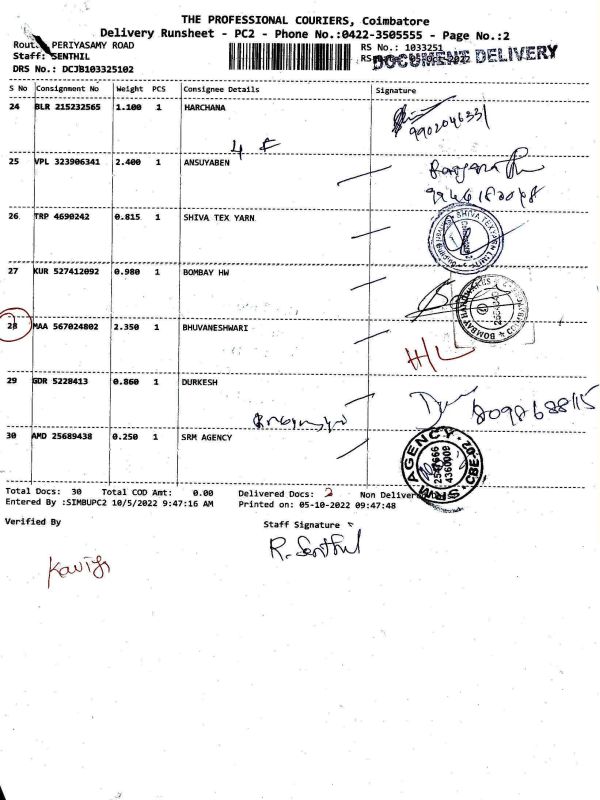 THE PROFESSIONAL COURIERS, Coimbatore
Delivery Runsheet - PC2 - Phone No.:0422-3505555 - Page No.:2
PERIYASAMY ROAD
RS No.: 1033251
Staff: SENTHIL
DOCUMENT DELIVERY
05-Oct-2022
DRS No.: DCJB103325102
S No Consignment No Weight PCS Consignee Details Signature
24 BLR 215232565 1.100 1 HARCHANA
9902046331
25 VPL 323906341 2.400 1 ANSUYABEN
26 TRP 4690242 0.815 1 SHIVA TEX YARN
27 KUR 527412092 0.980 1 BOMBAY HW
28 MAA 567024802 2.350 1 BHUVANESHWARI
H/L
29 GDR 5228413 0.860 1 DURKESH
30 AMD 25689438 0.250 1 SRM AGENCY
SRM AGENCY
Total Docs: 30 Total COD Amt: 0.00 Delivered Docs: 2 Non
Entered By :SIMBUPC2 10/5/2022 9:47:16 AM Printed on: 05-10-2022 09:47:48
Verified By Staff Signature
R. Senthil